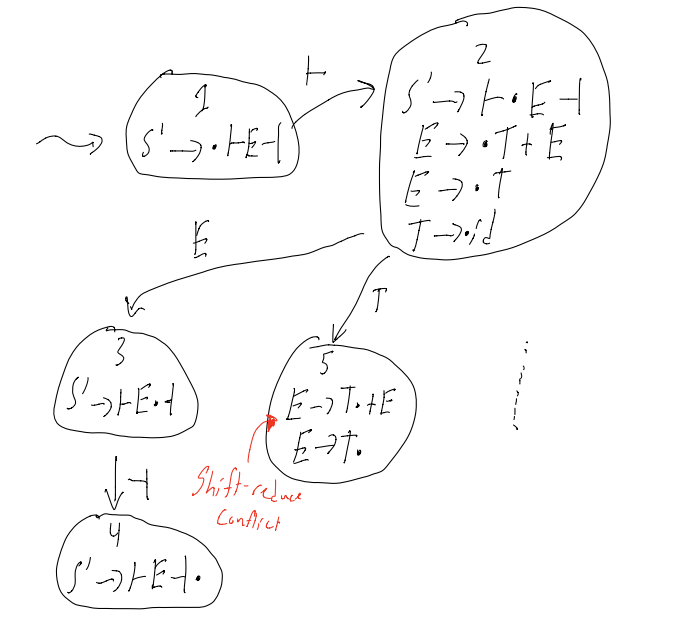 1
S' → · ⊢ E ⊣
⊢
2
S' → ⊢ · E ⊣
E → · T + E
E → · T
T → · id
E
T
3
S' → ⊢ E · ⊣
5
E → T · + E
E → T ·
Shift-reduce
conflict
⊣
4
S' → ⊢ E ⊣ ·